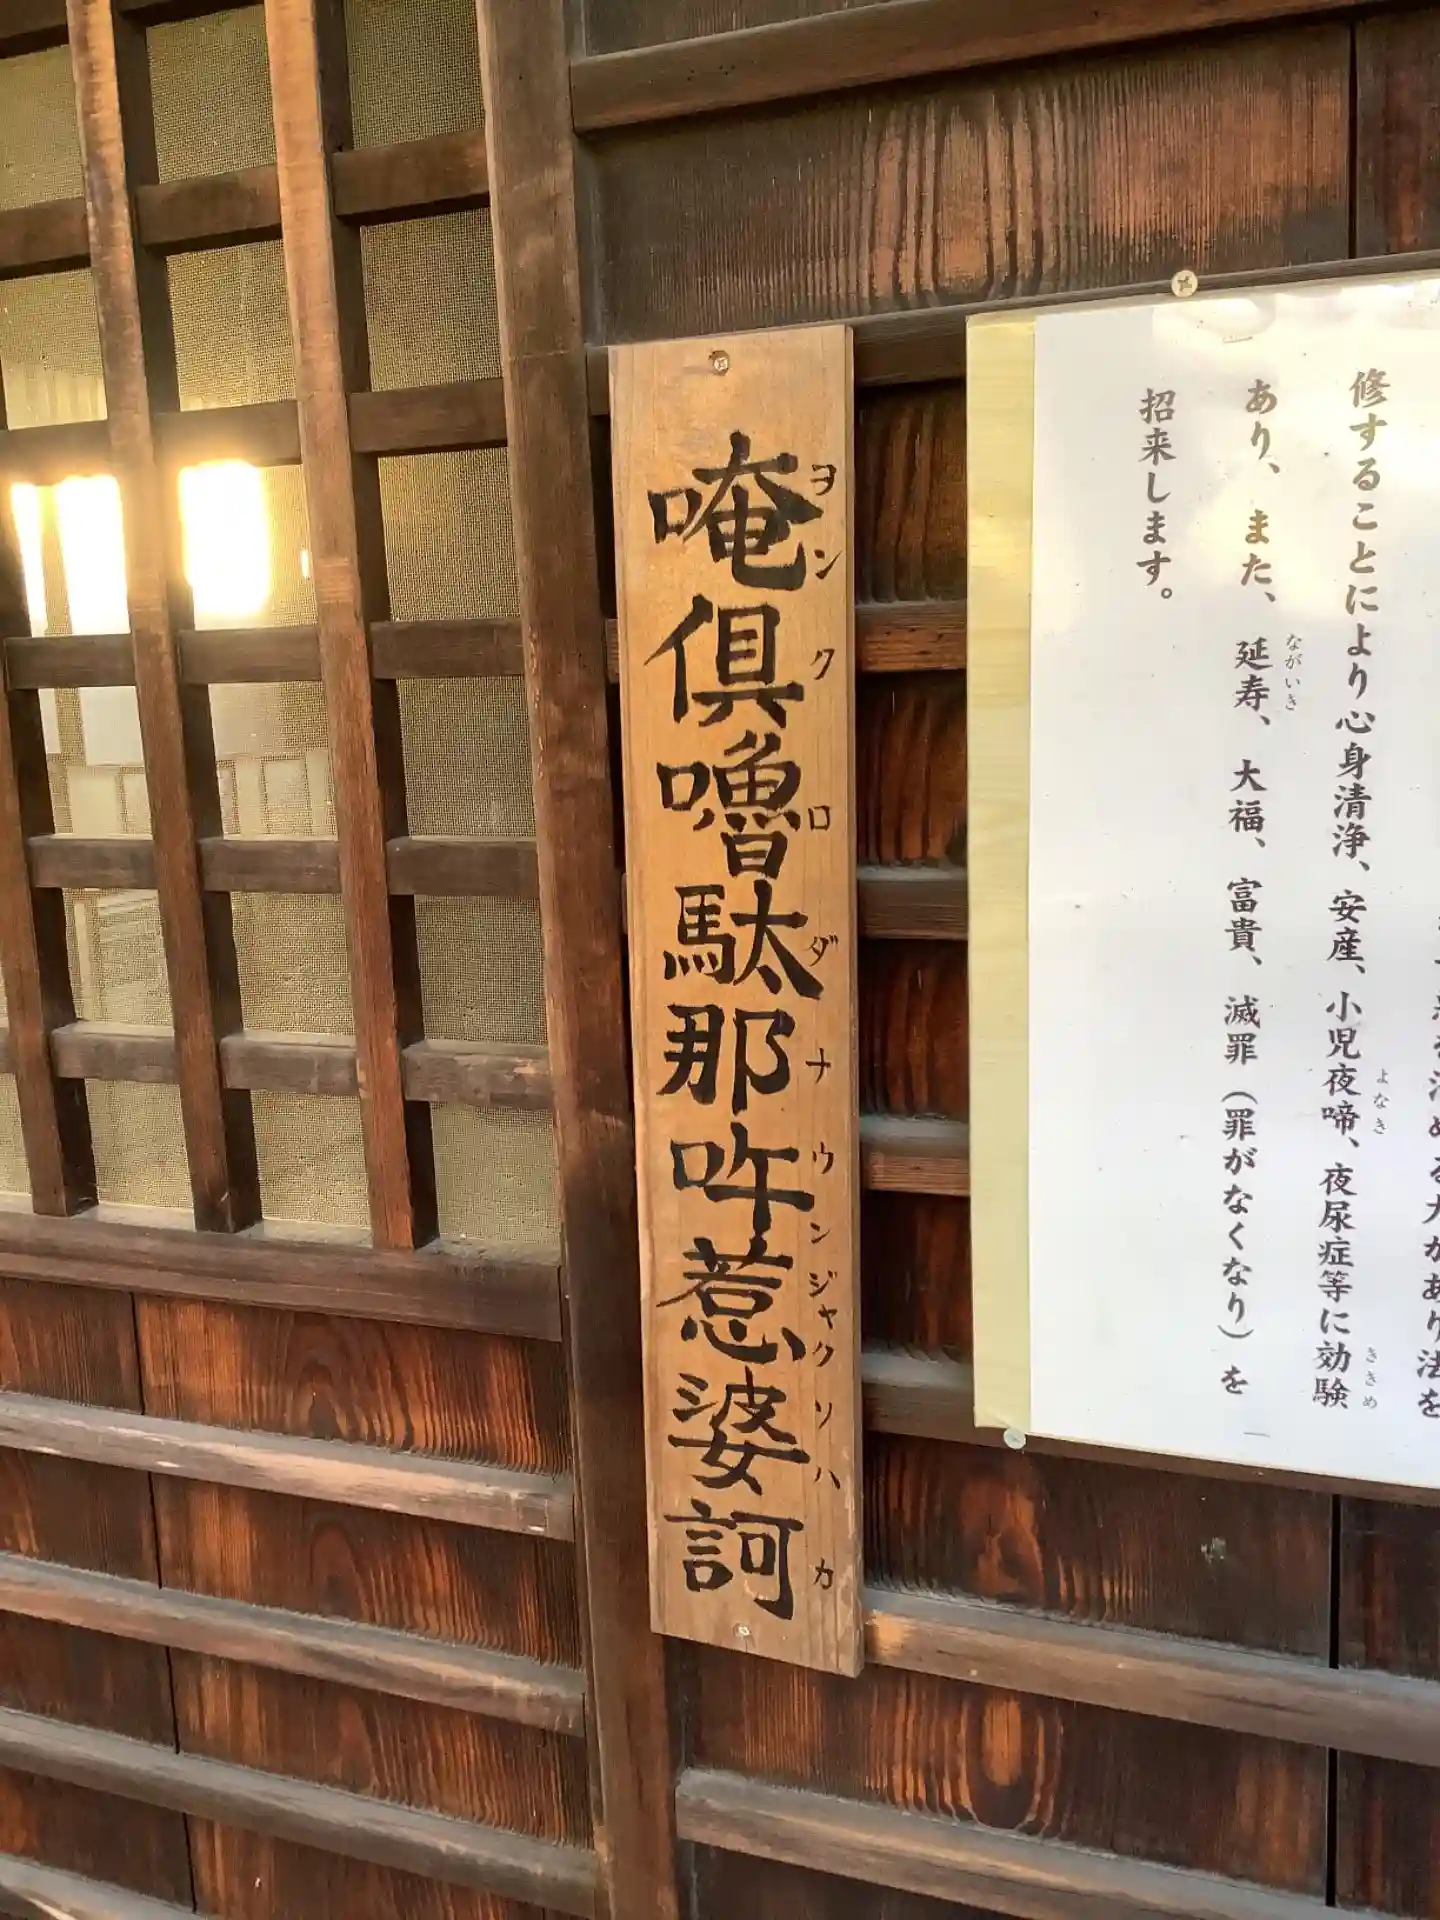 める力があり法を
修することにより心身清浄、安産、小児夜啼、夜尿症等に効験
よなき
ききめ
あり、また、延寿、大福、富貴、滅罪（罪がなくなり）を
ながいき
招来します。
ヲンクロダナウンジャクソハカ
唵倶嚕駄那吽惹婆訶